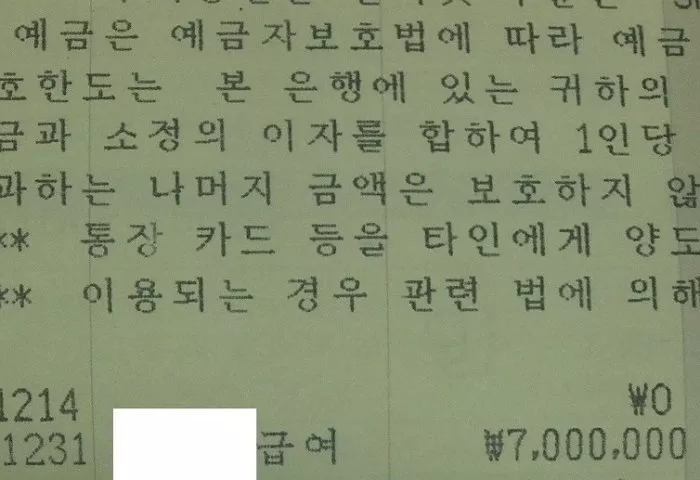 예금은 예금자보호법에 따라 예금
호한도는 본 은행에 있는 귀하의
금과 소정의 이자를 합하여 1인당
과하는 나머지 금액은 보호하지 않
** 통장 카드 등을 타인에게 양도
** 이용되는 경우 관련 법에 의해
1214 ₩0
1231 급여 ₩7,000,000